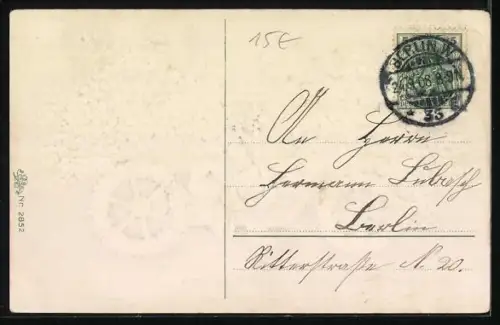 15€
BERLIN.W.
35
An Herrn
Hermann Lubosch
Berlin
Ritterstraße N. 20.
Nr. 2852